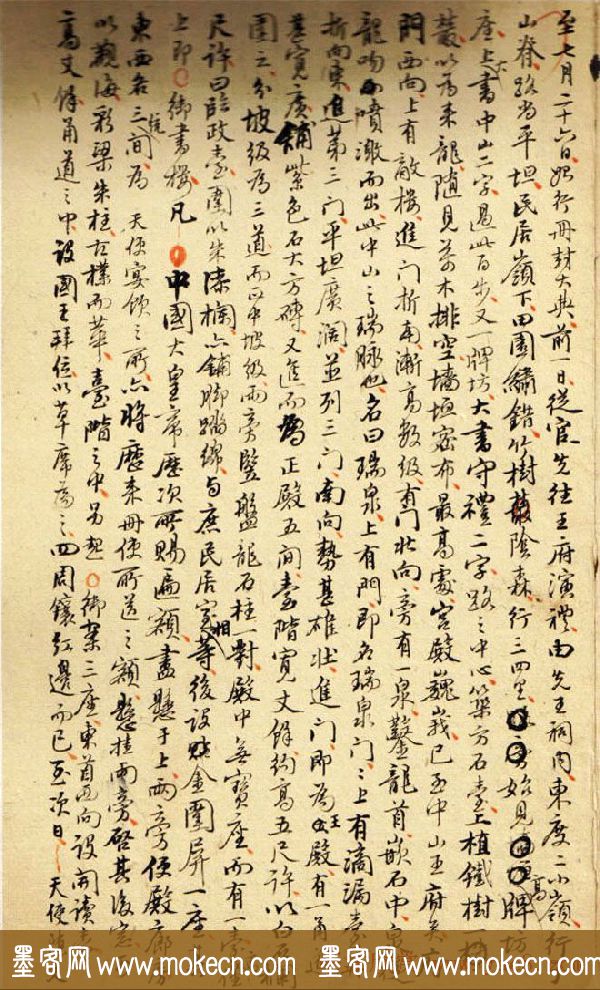 至七月二十六日始行冊封大典前一日從官先往王府演禮由先王祠向東度一小嶺行
山脊路尚平坦民居嶺下田園繡錯竹樹叢陰森行三四里 始見 高牌坊
座上書中山二字過此百步又一牌坊大書守禮二字路之中心築方石臺上植鐵樹
叢以為來龍隨見茗木排空墻垣密布最高處宮殿巍峩已至中山王府矣
門西向上有敵樓進門折南漸高數級有門北向旁有一泉鑿龍首嵌石中
龍吻噴激而出此中山之瑞脉也名曰瑞泉上有門即名瑞泉門門上有滴漏
折向東進第三門平坦廣濶並列三門南向勢甚雄壯進門即為王殿有一甬
甚寬廣鋪紫色石大方磚又進而為正殿五間臺階寬丈餘約高五尺許以白石
圍之分坡級為三道而正中坡級兩旁豎盤龍石柱一對殿中無寶座而有一臺
尺許曰臨政臺圍以朱漆欄亦鋪脚蹋綿與庶民居室相等後設貼金圍屏一座
上即御書樓凡中國大皇帝歷次所賜匾額盡懸于上兩旁便殿廊房
東西各三間為天使宴飲之所亦將歷來冊使所送之額懸挂兩旁啓其後窓
以觀海彩梁朱柱古樸而華臺階之中另起御案三座東首西向設開讀
高丈餘甬道之中設國王拜位以草席為之四周鑲紅邊而已至次日天使
墨客网 www.mokecn.com 墨客网 www.mokecn.com